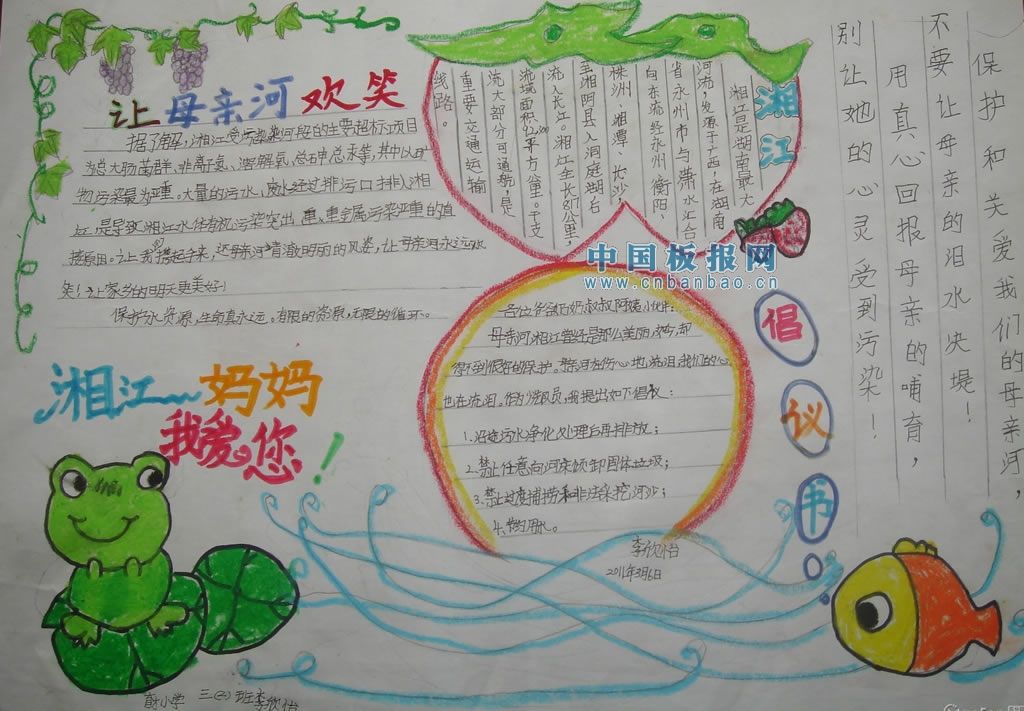 让母亲河欢笑
据了解，湘江受污染河段的主要超标项目
为总大肠菌群、非离子氨、溶解氧、总砷总汞等，其中以矿
物污染最为严重。大量的污水、废水经过排污口排入湘
江，是导致湘江水体有机污染突出、重金属污染严重的直
接原因。让我们携起手来，还母亲河清澈明丽的风姿，让母亲河永远欢
笑！让家乡的明天更美好！
保护水资源，生命真永远。有限的资源，无限的循环。
湘江
湘江是湖南最大
河流，发源于广西，在湖南
省永州市与萧水汇合
向东流经永州、衡阳、
株洲、湘潭、长沙，
至湘阴县入洞庭湖后
流入长江。湘江全长817公里，
流域面积92300平方公里。干支
流大部分可通航，是
重要交通运输
线路。
保护和关爱我们的母亲河，
用真心回报母亲的哺育，
不要让母亲的泪水决堤！
别让她的心灵受到污染！
中国板报网
www.cnbanbao.cn
倡议书
各位爷爷奶奶叔叔阿姨小伙伴：
母亲河湘江曾经是那么美丽，如今，却
得不到很好的保护。母亲河在伤心地流泪，我们的心
也在流泪。作为少队员，我提出如下倡议：
1.沿途污水净化处理后再排放；
2.禁止任意向河床倾卸固体垃圾；
3.禁止过度捕捞和非法采挖河沙；
4.节约用水。
李欣怡
2011年3月6日
湘江妈妈
我爱您！
小学 三(二)班李欣怡